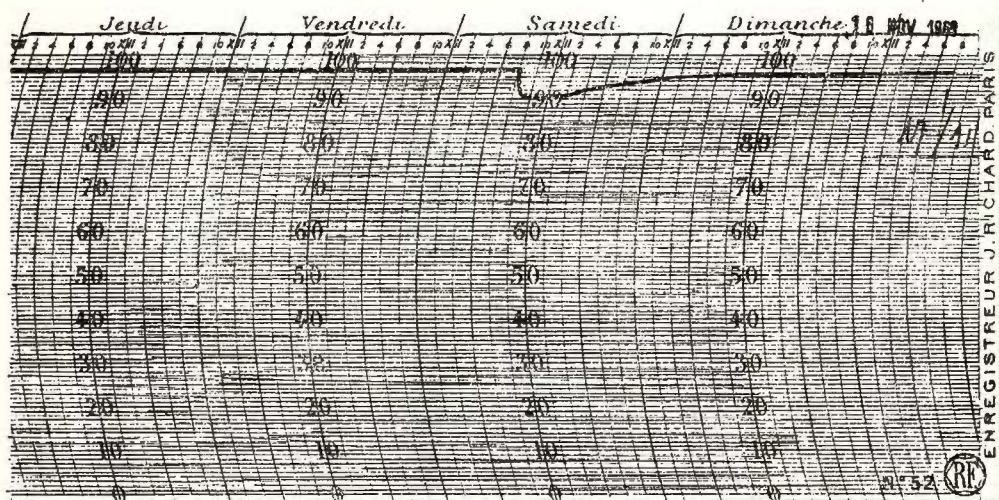 Jeudi Vendredi Samedi Dimanche
XII 2 4 6 8 10 XII 2 4 6 8 10 XII 2 4 6 8 10 XII 2 4 6 8 10 XII 2 4 6 8 10 XII 2 4 6 8 10 XII 2 4 6 8 10 XII 2 4 6 8 10 XII 2 4 6 8
100 100 100 100
90 90 90 90
80 80 80 80
70 70 70 70
60 60 60 60
50 50 50 50
40 40 40 40
30 30 30 30
20 20 20 20
10 10 10 10
0 0 0 0
ENREGISTREUR J. RICHARD. PARIS
N° 52 RF